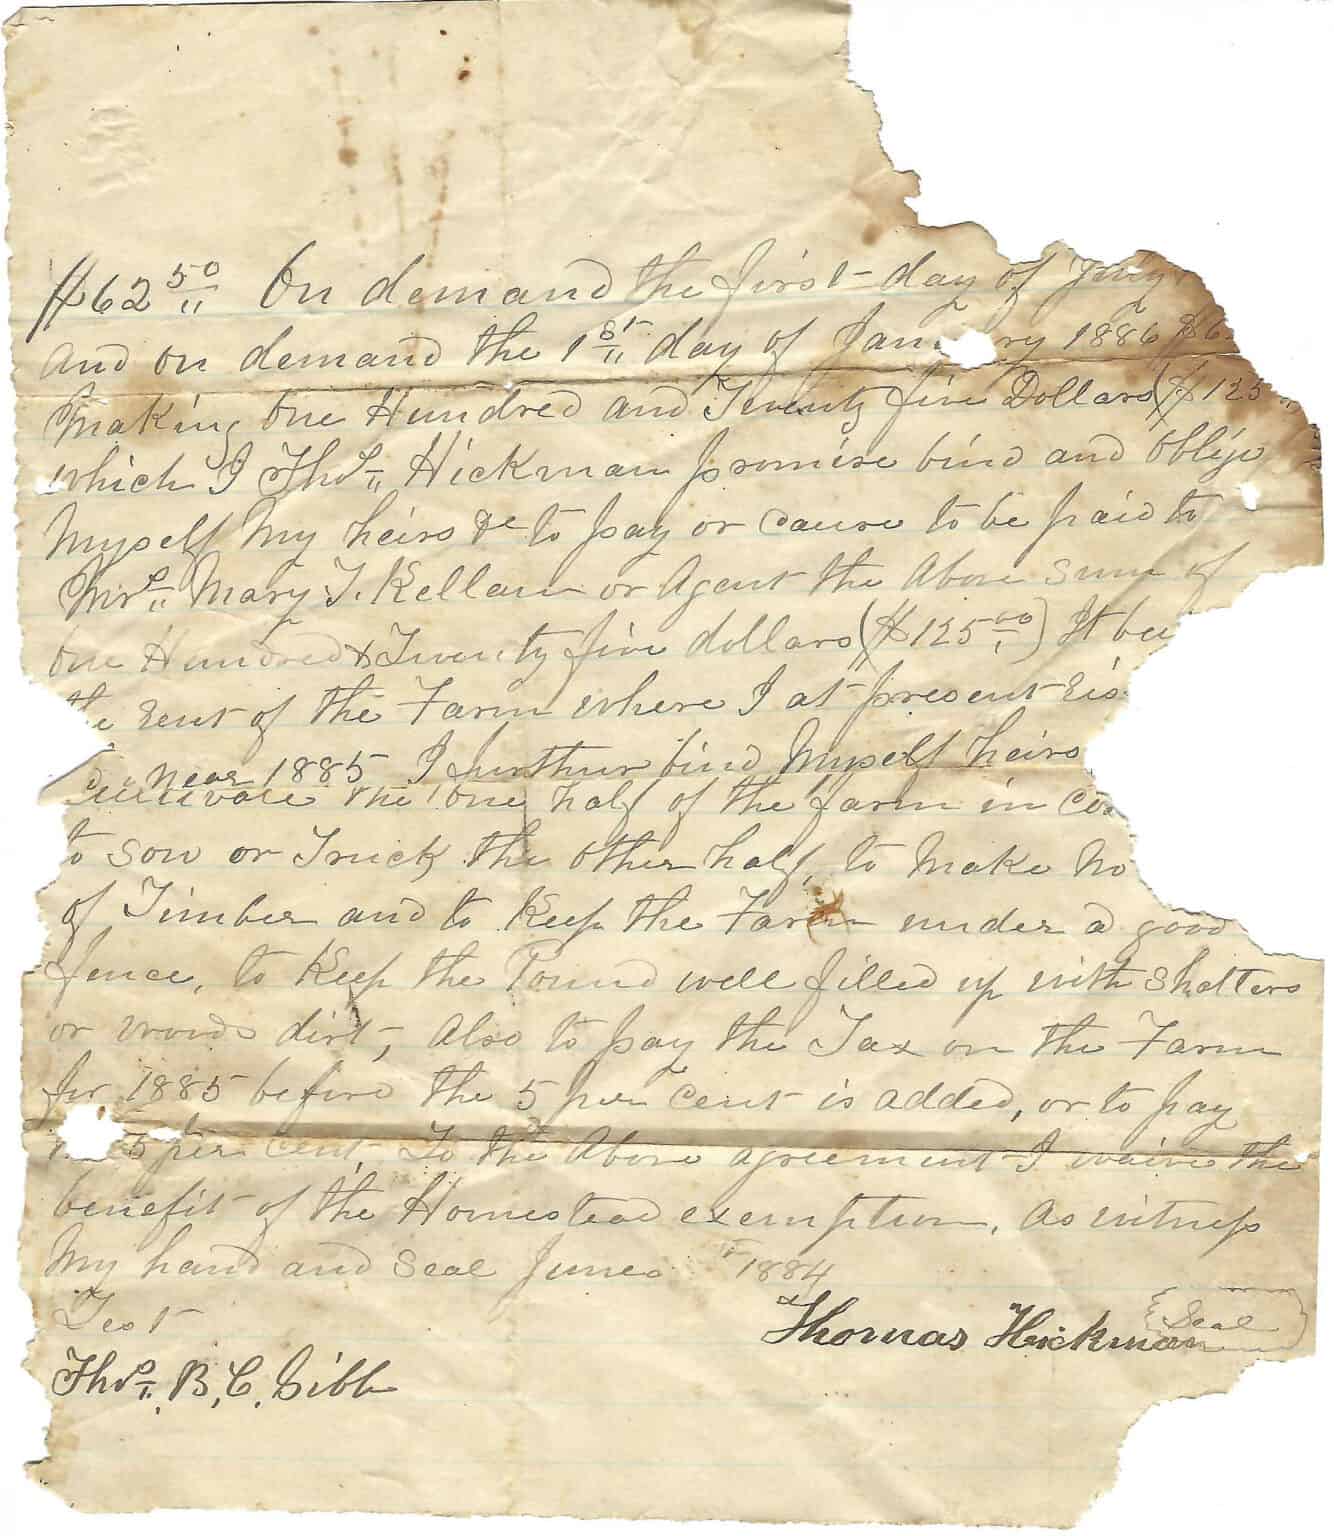 $62 50/" On demand the first day of July
and on demand the 1st day of Jan ry 1886 $6
Making One Hundred and Twenty five Dollars ($125
which I Thos. Hickman promise bind and oblige
Myself My heirs &c to pay or cause to be paid to
Mrs. Mary T. Kellam or Agent the Above sum of
One Hundred & Twenty five dollars ($125 00) It bei
the rent of the Farm where I at present res
year 1885 I furthur bind Myself heirs
Cultivate the one half of the farm in co
to sow or Truck the other half, to Make No
of Timber and to Keep the Farm under a good
fence, to Keep the Pound well filled up with Shatters
or woods dirt, Also to pay the Tax on the Farm
for 1885 before the 5 per cent is added, or to pay
5 per cent. To the Above agreement I waive the
benefit of the Homestead exemption. As witness
My hand and Seal June 1884
Test
Thomas Hickman Seal
Thos. B. C. Gibb